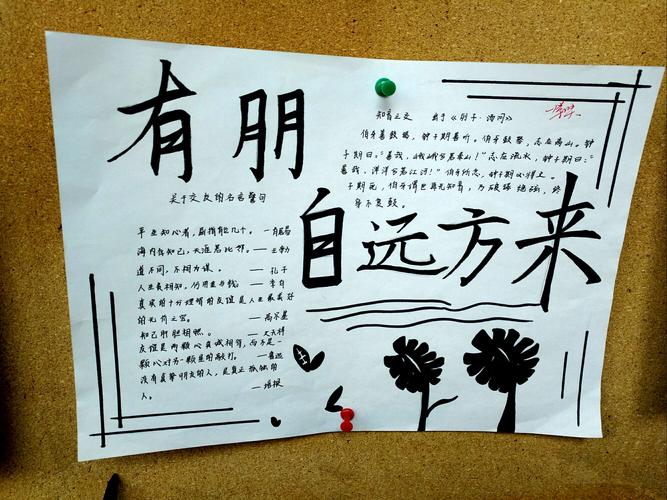 有朋
自远方来
知音之交 出于《列子·汤问》
伯牙善鼓琴，钟子期善听。伯牙鼓琴，志在高山。钟
子期曰："善哉，峨峨兮若泰山！"志在流水，钟子期曰："
善哉，洋洋兮若江河！"伯牙所念，钟子期必得之。
子期死，伯牙谓世再无知音，乃破琴绝弦，终
身不复鼓。
关于交友的名言警句
平生知心者，屈指能几个。
海内存知己，天涯若比邻。——王勃
道不同，不相为谋。——孔子
人生贵相知，何用金与钱。——李白
真实的十分理智的友谊是人生最美好
的无价之宝。——高尔基
知己肝胆相照。——文天祥
友谊是两颗心真诚相待，而不是一
颗心对另一颗心的敲打。——鲁迅
没有真挚朋友的人，是真正孤独的
人。——培根